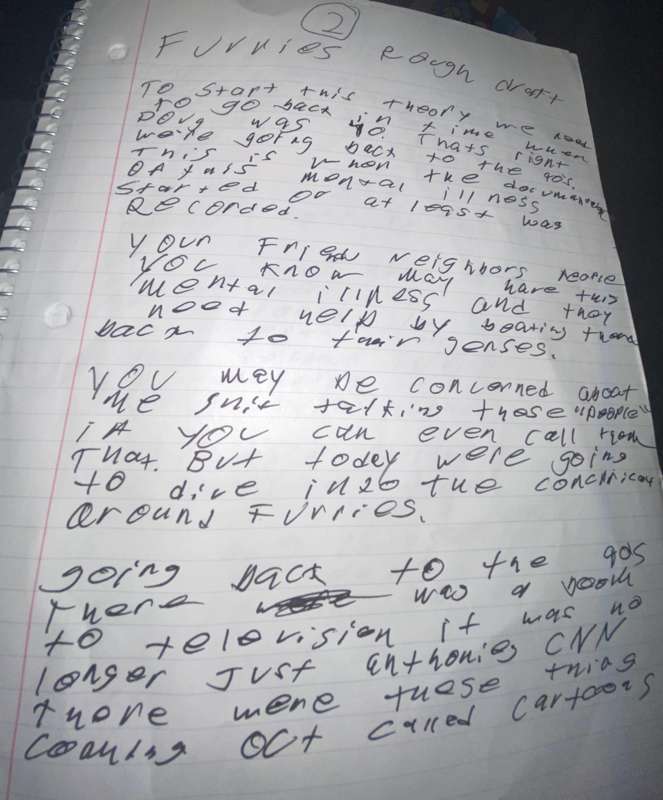 2
Furries rough draft
To start this theory we need
to go back in time when
Doug was 40. Thats right
we're going back to the 90s.
This is when the documenting
of this mental illness
started or at least was
Recorded.
Your Friends Neighbors people
you know may have this
mental illness and they
need help by beating them
back to their senses.
You may be concerned about
me shit talking those "people"
if you can even call them
that. But today were going
to dive into the
around Furries.
going back to the 90s
There was a boom
to television it was no
longer Just anthonies CNN
there were these thing
coming Oct called cartoons